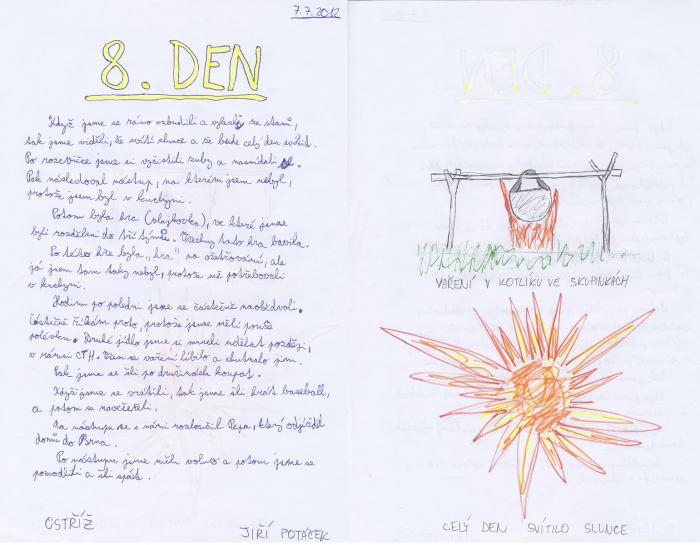 7.7.2012
8. DEN
Když jsme se ráno vzbudili a vylezli ze stanů,
tak jsme viděli, že svítí slunce a že bude celý den svítit.
Po rozcvičce jsme si vyčistili zuby a nasnídali se.
Pak následoval nástup, na kterém jsem nebyl,
protože jsem byl v kuchyni.
Potom byla hra (vlajkovka), ve které jsme
byli rozděleni do tří týmů. Všechny tato hra bavila.
Po této hře byla „hra" na ošetřování, ale
já jsem tam taky nebyl, protože mě potřebovali
v kuchyni.
Hodinu po poledni jsme se částečně naobědvali.
Částečně říkám proto, protože jsme měli pouze
polévku. Druhé jídlo jsme si museli udělat později,
v rámci CTH. Všem se vaření líbilo a chutnalo jim.
Pak jsme se šli po družinách koupat.
Když jsme se vrátili, tak jsme šli hrát baseball,
a potom se navečeřeli.
Na nástupu se s námi rozloučil Pepa, který odjížděl
domů do Brna.
Po nástupu jsme měli volno a potom jsme se
pomodlili a šli spát.
OSTŘÍŽ
JIŘÍ POTÁČEK
VAŘENÍ V KOTLÍKU VE SKUPINKÁCH
CELÝ DEN SVÍTILO SLUNCE